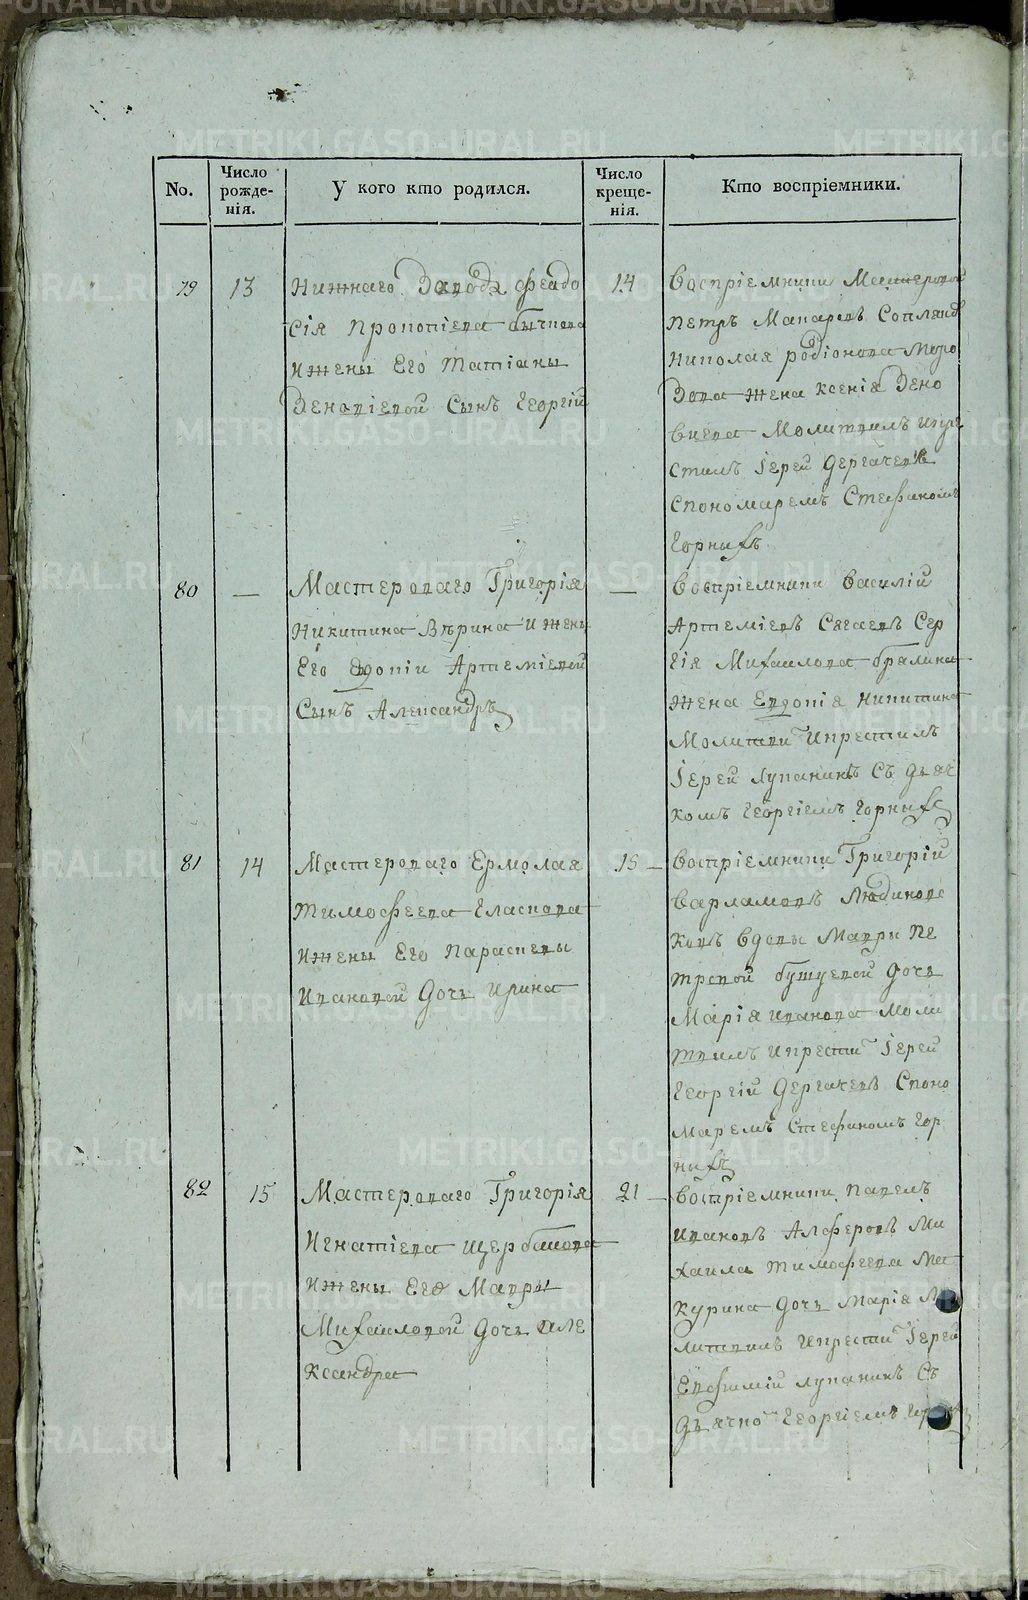 No.
Число рожде-нія.
У кого кто родился.
Число креще-нія.
Кто воспріемники.
79
13
Нижнаго Завода Феядо
сія Прокопіева Бычкова
ижены Его Татіаны
Зеновіевой Сынъ Георгій
14
Воспріемники Мастеровой
Петръ Макаровъ
Николая родіонова Моро
Зова жена Ксенія Зено
виева Молитвилъ икре
стилъ Іерей Дергачевъ
Спономаремъ Стефаномъ
Горныхъ
80
—
Мастероваго Григорія
Никитина Вѣрина ижены
Его Евдокіи Артеміевой
Сынъ Александръ
—
Воспріемники Василій
Артеміевъ Сягаевъ Сер
гія Михаилова
жена Евдокія Никитина
Молитви икрестилъ
Іерей Лупанинъ Съ дьяч
комъ Георгіемъ Горныхъ
81
14
Мастероваго Ермолая
Тимофеева Власкова
ижены Его Параскевы
Ивановой Дочь Ирина
15 —
Воспріемники Григорій
Варламовъ Людиновс
ковъ вдовы Мавры Пе
тровой Бутуевой Дочь
Марія иванова Моли
твилъ икрести Іерей
Георгій Дергачевъ Споно
маремъ Стефаномъ Гор
ныхъ
82
15
Мастероваго Григорія
Игнатіева Щербакова
ижены Его Мавры
Михаиловой Дочь Але
ксандра
21 —
Воспріемники Павелъ
Ивановъ Алферовъ Ми
хаила Тимофеева Ма
курина Дочь Марія Мо
литвилъ икрести Іерей
Евфимій Лупанинъ Съ
Дьячко Георгіемъ
METRIKI.GASO-URAL.RU